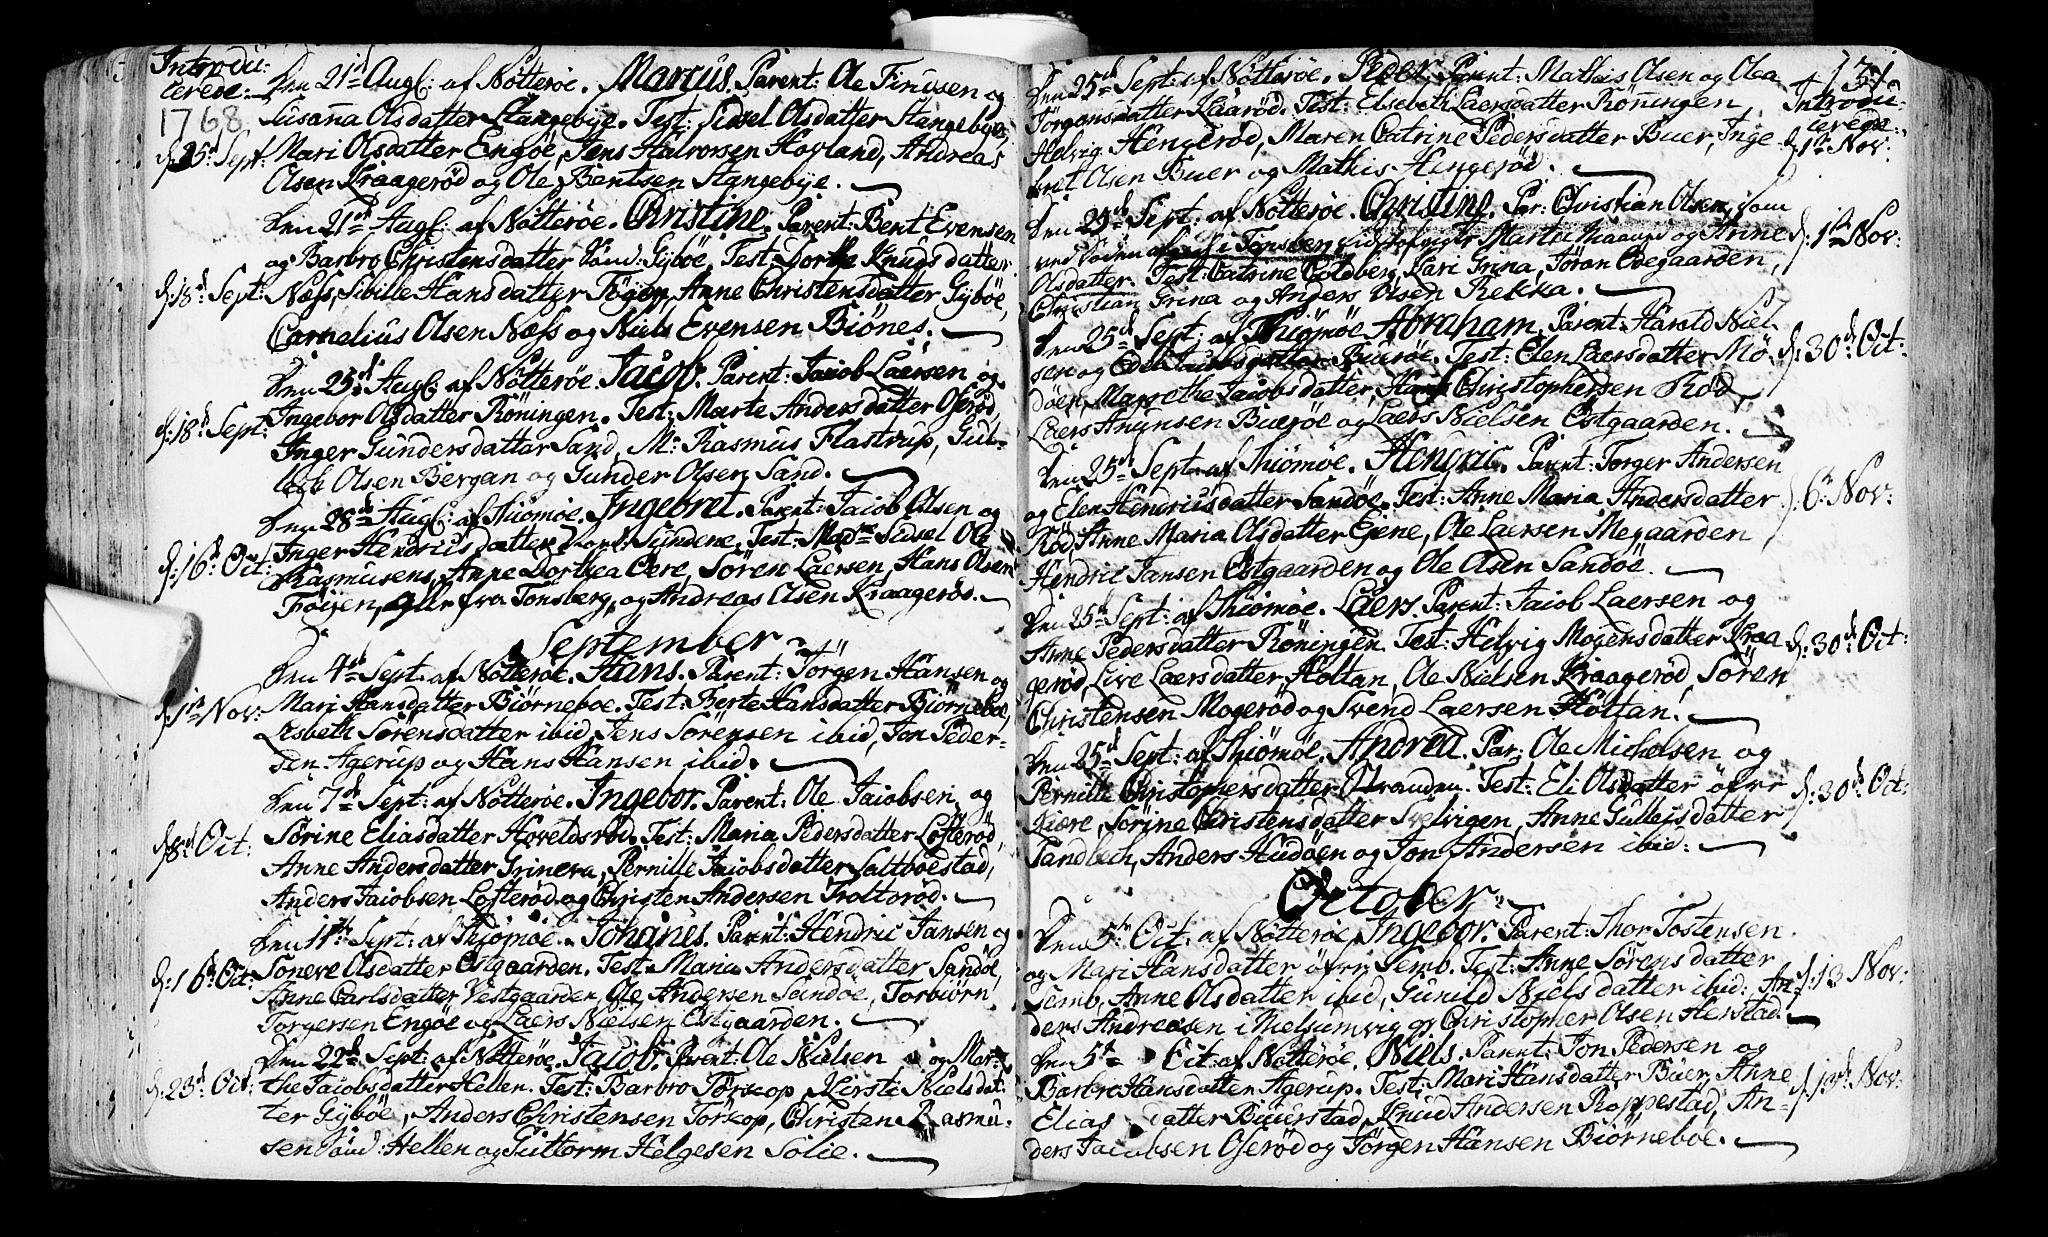 Introdu:
cerede:
1768
Den 21de Aug: af Nötteröe. Marcus. Parent: Ole Finnsen og
Susanna Olsdatter Stangebÿe. Test: Sidsel Olsdatter Stangebye,
d: 25de Sept: Mari Olsdatter Engöe, Jens Halvorsen Hovland, Andreas
Olsen Kraageröd og Ole Bentsen Stangebye.
Den 21de Aug: af Nötteröe. Christine. Parent: Bent Evensen
og Barbro Christensdatter Gÿböe. Test: Dorthe Knudsdatter
d: 18de Sept: Næss, Sibille Hansdatter Föÿen, Anne Christensdatter Gÿböe,
Cornelius Olsen Næss og Niels Evensen Biönes.
Den 25de Aug: af Nötteröe. Jacob. Parent: Jacob Laersen og
d: 18de Sept: Ingebor Olsdatter Röningen. Test: Marte Andersdatter Oseröd,
Inger Gundersdatter Sand, Mr: Rasmus Flastrup, Gul-
Olsen Bergan og Gunder Olsen Sand.
Den 28de Aug: af Thiömöe. Ingebret. Parent: Jacob Olsen og
Inger Hendricsdatter Sundene. Test: Madme Sidsel Ole
d: 16de Oct: Rasmusens, Anne Dorthea Oere, Sören Laersen, Hans Olsen
Föÿen, alle fra Tönsberg, og Andreas Olsen Kraageröd.
September
Den 4de Sept: af Nötteröe. Hans. Parent: Törgen Hansen og
d: 1te Nov: Mari Hansdatter Biörneboe. Test: Berte Hansdatter Biörneboe,
Lisbeth Sörensdatter ibid, Jens Sörensen ibid, Jon Peder-
sen Agerup og Hans Hansen ibid.
Den 7de Sept: af Nötteröe. Ingebor. Parent: Ole Jacobsen og
d: 8de Oct: Sörine Eliasdatter Hoveldsröd. Test: Maria Pedersdatter Lofteröd,
Anne Andersdatter Grinera, Pernille Jacobsdatter Saltboestad,
Anders Jacobsen Lofteröd og Christen Andersen Trolloröd.
Den 11te Sept: af Thiömöe. Johanes. Parent: Hendric Jansen og
d: 16de Oct: Soneve Olsdatter Ostgaarden. Test: Maria Andersdatter Sandöe,
Anne Carlsdatter Vestgaarden, Ole Andersen Sandöe, Torbiörn
Torgersen Engöe og Laers Nielsen Ostgaarden.
Den 22de Sept: af Nötteröe. Jacob. Parent: Ole Nielsen og Mar-
d: 23de Oct: the Jacobsdatter Hellen. Test: Barbro Torscop, Kirsti Nielsdat-
ter Gÿböe, Anders Christensen Torscop, Christen Rasmu-
sen Hellen og Guttorm Helgesen Solie.
131.
Introdu-
cerede:
Den 25de Sept: af Nötteröe. Peder. Parent: Mathis Olsen og Olea
Törgensdatter Haaröd. Test: Elsebeth Laersdatter Röningen,
Helvig Hengeröd, Maren Catrine Pedersdatter Buer, Inge- d: 1te Nov:
bret Olsen Buer og Mathis Hengeröd.
Den 25de Sept: af Nötteröe. Christine. Par: Christian Olsen, som
ved Döden i Tönsberg og Anne d: 1te Nov:
Olsdatter. Test: Catrine Goldberg, Kari Grina, Jöran Ovegaarden,
Christian Grina og Anders Olsen Rekka.
Den 25de Sept: af Thiömöe. Abraham. Parent: Harold Niel-
sen og Edel Jacobsdatter Bueröe. Test: Elen Laersdatter Mö- d: 30de Oct:
döen, Marrethe Jacobsdatter, Hans Christophersen Röd,
Laers Anunsen Bueröe og Laers Nielsen Ostgaarden.
Den 25de Sept: af Thiömöe. Hendric. Parent: Torger Andersen
og Elen Hendricsdatter Sandöe. Test: Anne Maria Andersdatter d: 6te Nov:
Röd, Anne Maria Olsdatter Eiene, Ole Laersen Megaarden
Hendric Jansen Ostgaarden og Ole Olsen Sandöe.
Den 25de Sept: af Thiömöe. Laers. Parent: Jacob Laersen og
Anne Pedersdatter Röningen. Test: Helvig Mogensdatter Kraa- d: 30de Oct:
geröd, Live Laersdatter Holtan, Ole Nielsen Kraageröd, Sören
Christensen Mogeröd og Svend Laersen Holtan.
Den 25de Sept: af Thiömöe. Andrea. Par: Ole Michelsen og
Pernille Christophersdatter Test: Eli Olsdatter öfvre d: 30de Oct:
Giære, Sörine Christensdatter Svelvigen, Anne Gulleiksdatter
Sandbech, Anders Hudöen og Jon Andersen ibid:
October
Den 5te Oct: af Nötteröe. Ingebor. Parent: Thor Tostensen
og Mari Hansdatter öfvre Semb. Test: Anne Sörensdatter
Semb, Anne Olsdatter ibid, Gunild Nielsdatter ibid: An- d: 13 Nov:
ders Andreasen i Nielsumvig og Christopher Olsen Henstad.
Den 5te Oct: af Nötteröe. Niels. Parent: Jon Pedersen og
Barbro Hansdatter Agerup. Test: Mari Hansdatter Buer, Anne d: 13de Nov:
Elias datter Buerstad, Knud Andersen Roppestad, An-
ders Jacobsen Oseröd og Törgen Hansen Biörneboe.